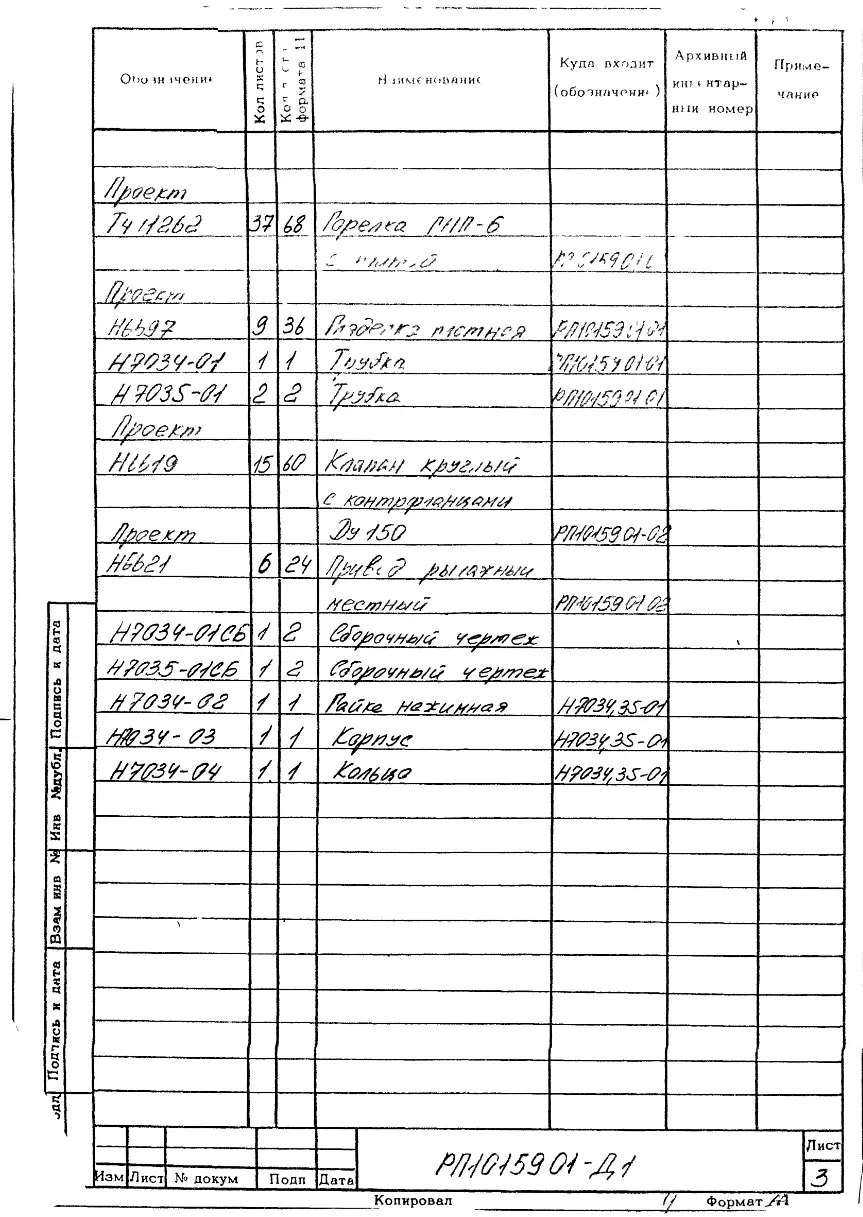 Обозначение Кол листов Наименование Куда входит (обозначение) Архивный инвентарный номер Примечание
формата 11
Проект
ТЧ 11262 37 68 Горелка ГНП-6
с
Проект
Н6697 9 36 местная РП1015901-01
Н7034-01 1 1 Трубка РП1015901-01
Н7035-01 2 2 Трубка РП1015901-01
Проект
Н6619 15 60 Клапан круглый
с контрфланцами
Проект Ду 150 РП1015901-02
Н6621 6 24 Привод рычажный
местный РП1015901-02
Н7034-01СБ 1 2 Сборочный чертеж
Н7035-01СБ 1 2 Сборочный чертеж
Н7034-02 1 1 Гайка нажимная Н7034,35-01
Н7034-03 1 1 Корпус Н7034,35-01
Н7034-04 1 1 Кольцо Н7034,35-01
Подпись и дата
Инв №дубл.
Взам инв №
Подпись и дата
РП1015901-Д1
Лист
3
Изм Лист № докум Подп Дата
Копировал Формат